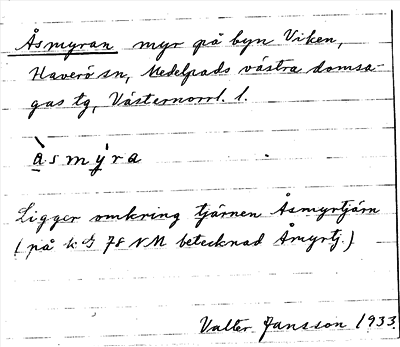 Åsmyran myr på byn Viken,
Haverö sn, Medelpads västra domsa-
gas tg, Västernorrl. l.
àsmýra
Ligger omkring tjärnen Åsmyrtjärn
(på k. 78 NM betecknad Åmyrtj.)
Valter Jansson 1933.